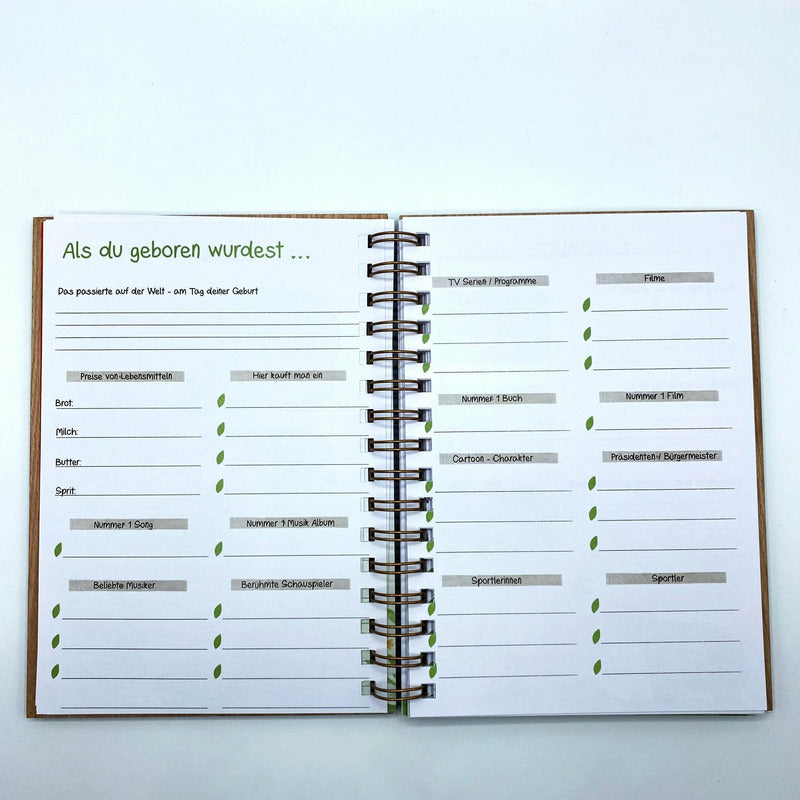 Als du geboren wurdest ...
Das passierte auf der Welt - am Tag deiner Geburt
Preise von Lebensmitteln
Hier kauft man ein
Brot:
Milch:
Butter:
Sprit:
Nummer 1 Song
Nummer 1 Musik Album
Beliebte Musiker
Berühmte Schauspieler
TV Serien / Programme
Filme
Nummer 1 Buch
Nummer 1 Film
Cartoon - Charakter
Präsidenten / Bürgermeister
Sportlerinnen
Sportler